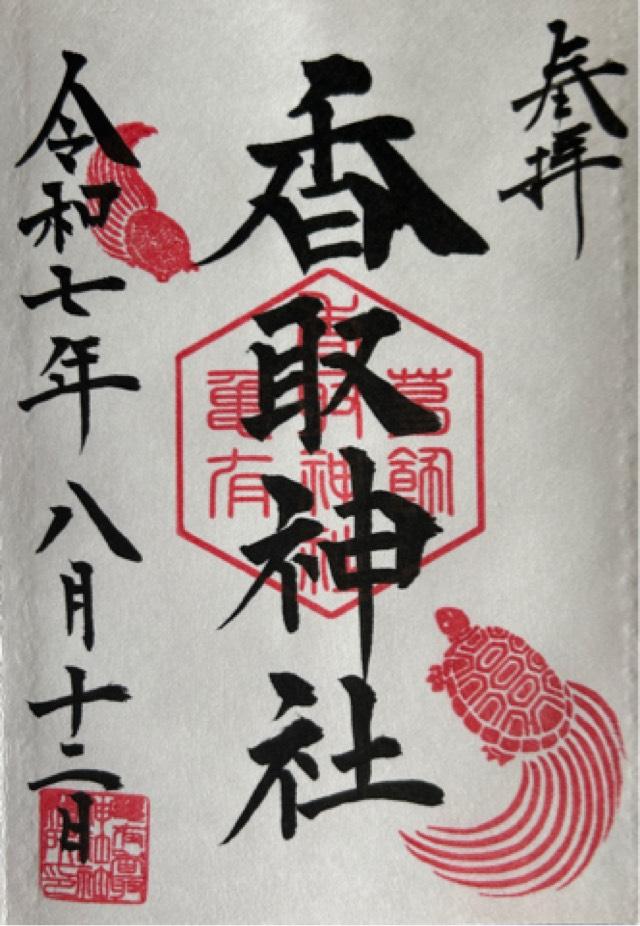 奉拝
香取神社
葛飾
香取神社
亀有
令和七年八月十二日